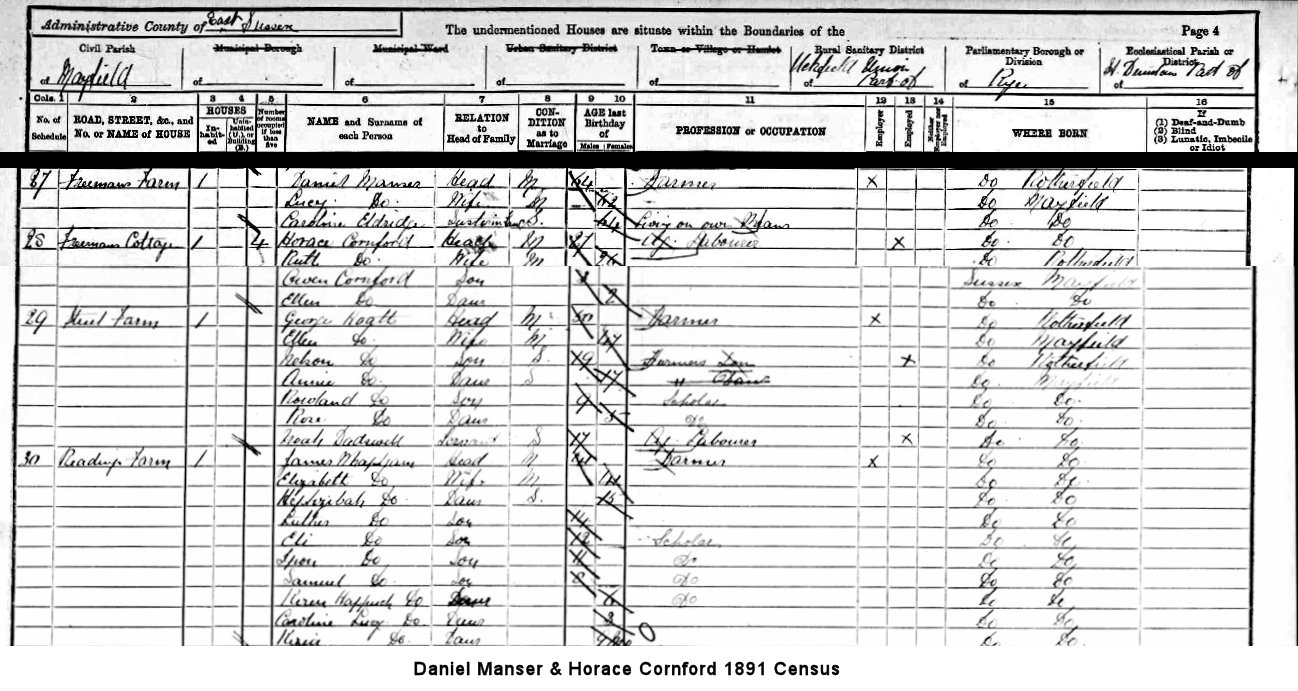 Administrative County of East Sussex
The undermentioned Houses are situate within the Boundaries of the
Page 4
Civil Parish of Mayfield
Municipal Borough of
Municipal Ward of
Urban Sanitary District of
Town or Village or Hamlet of
Rural Sanitary District Uckfield Union Part of
Parliamentary Borough or Division of Rye
Ecclesiastical Parish or District of St. Dunstans Part of
Cols. 1 2 3 4 5 6 7 8 9 10 11 12 13 14 15 16
No. of Schedule
ROAD, STREET, &c., and No. or NAME of HOUSE
HOUSES
In-habit-ed
Unin-habited (U.), or Building (B.)
Number of rooms occupied if less than five
NAME and Surname of each Person
RELATION to Head of Family
CON-DITION as to Marriage
AGE last Birthday of
Males Females
PROFESSION or OCCUPATION
Employer
Employed
Neither Employer nor Employed
WHERE BORN
If
(1) Deaf-and-Dumb
(2) Blind
(3) Lunatic, Imbecile or Idiot
27 Freemans Farm 1 Daniel Manser Head M 64 Farmer X Do Rotherfield
Lucy Do. Wife M 62 Do Mayfield
Caroline Eldridge S. 64 Living on own Means Do Do
28 Freemans Cottage 1 4 Horace Cornford Head M 27 Ag. Labourer X Do. Do
Ruth Do. Wife M 26 Do Rotherfield
Owen Cornford Son 3 Sussex Mayfield
Ellen Do Daur 2 Do Do
29 Farm 1 George Head M Farmer X Do Rotherfield
Ellen Do Wife M 47 Do Mayfield
Nelson Do Son S. 19 Farmers Son X Do Rotherfield
Annie Do. Daur S 17 " Daur Do. Mayfield
Rowland Do Son 9 Scholar Do Do.
Rose Do Daur 5 Do Do Do.
Noah Dadswell Servant S 17 Ag. Labourer X Do Do
30 Readings Farm 1 James Head M Farmer X Do Do.
Elizabeth Do Wife M 44 Do Do
Hephzibah Do. Daur S. 15 Do Do
Luther Do Son 14 Do Do
Eli Do Son 12 Scholar Do Do
Do Son 11 Do Do Do
Samuel Do. Son 8 Do Do Do
Keren Happuch Do Daur 6 Do Do Do
Caroline Lucy Do. Daur 3 Do Do
Do. Daur Do Do
Daniel Manser & Horace Cornford 1891 Census